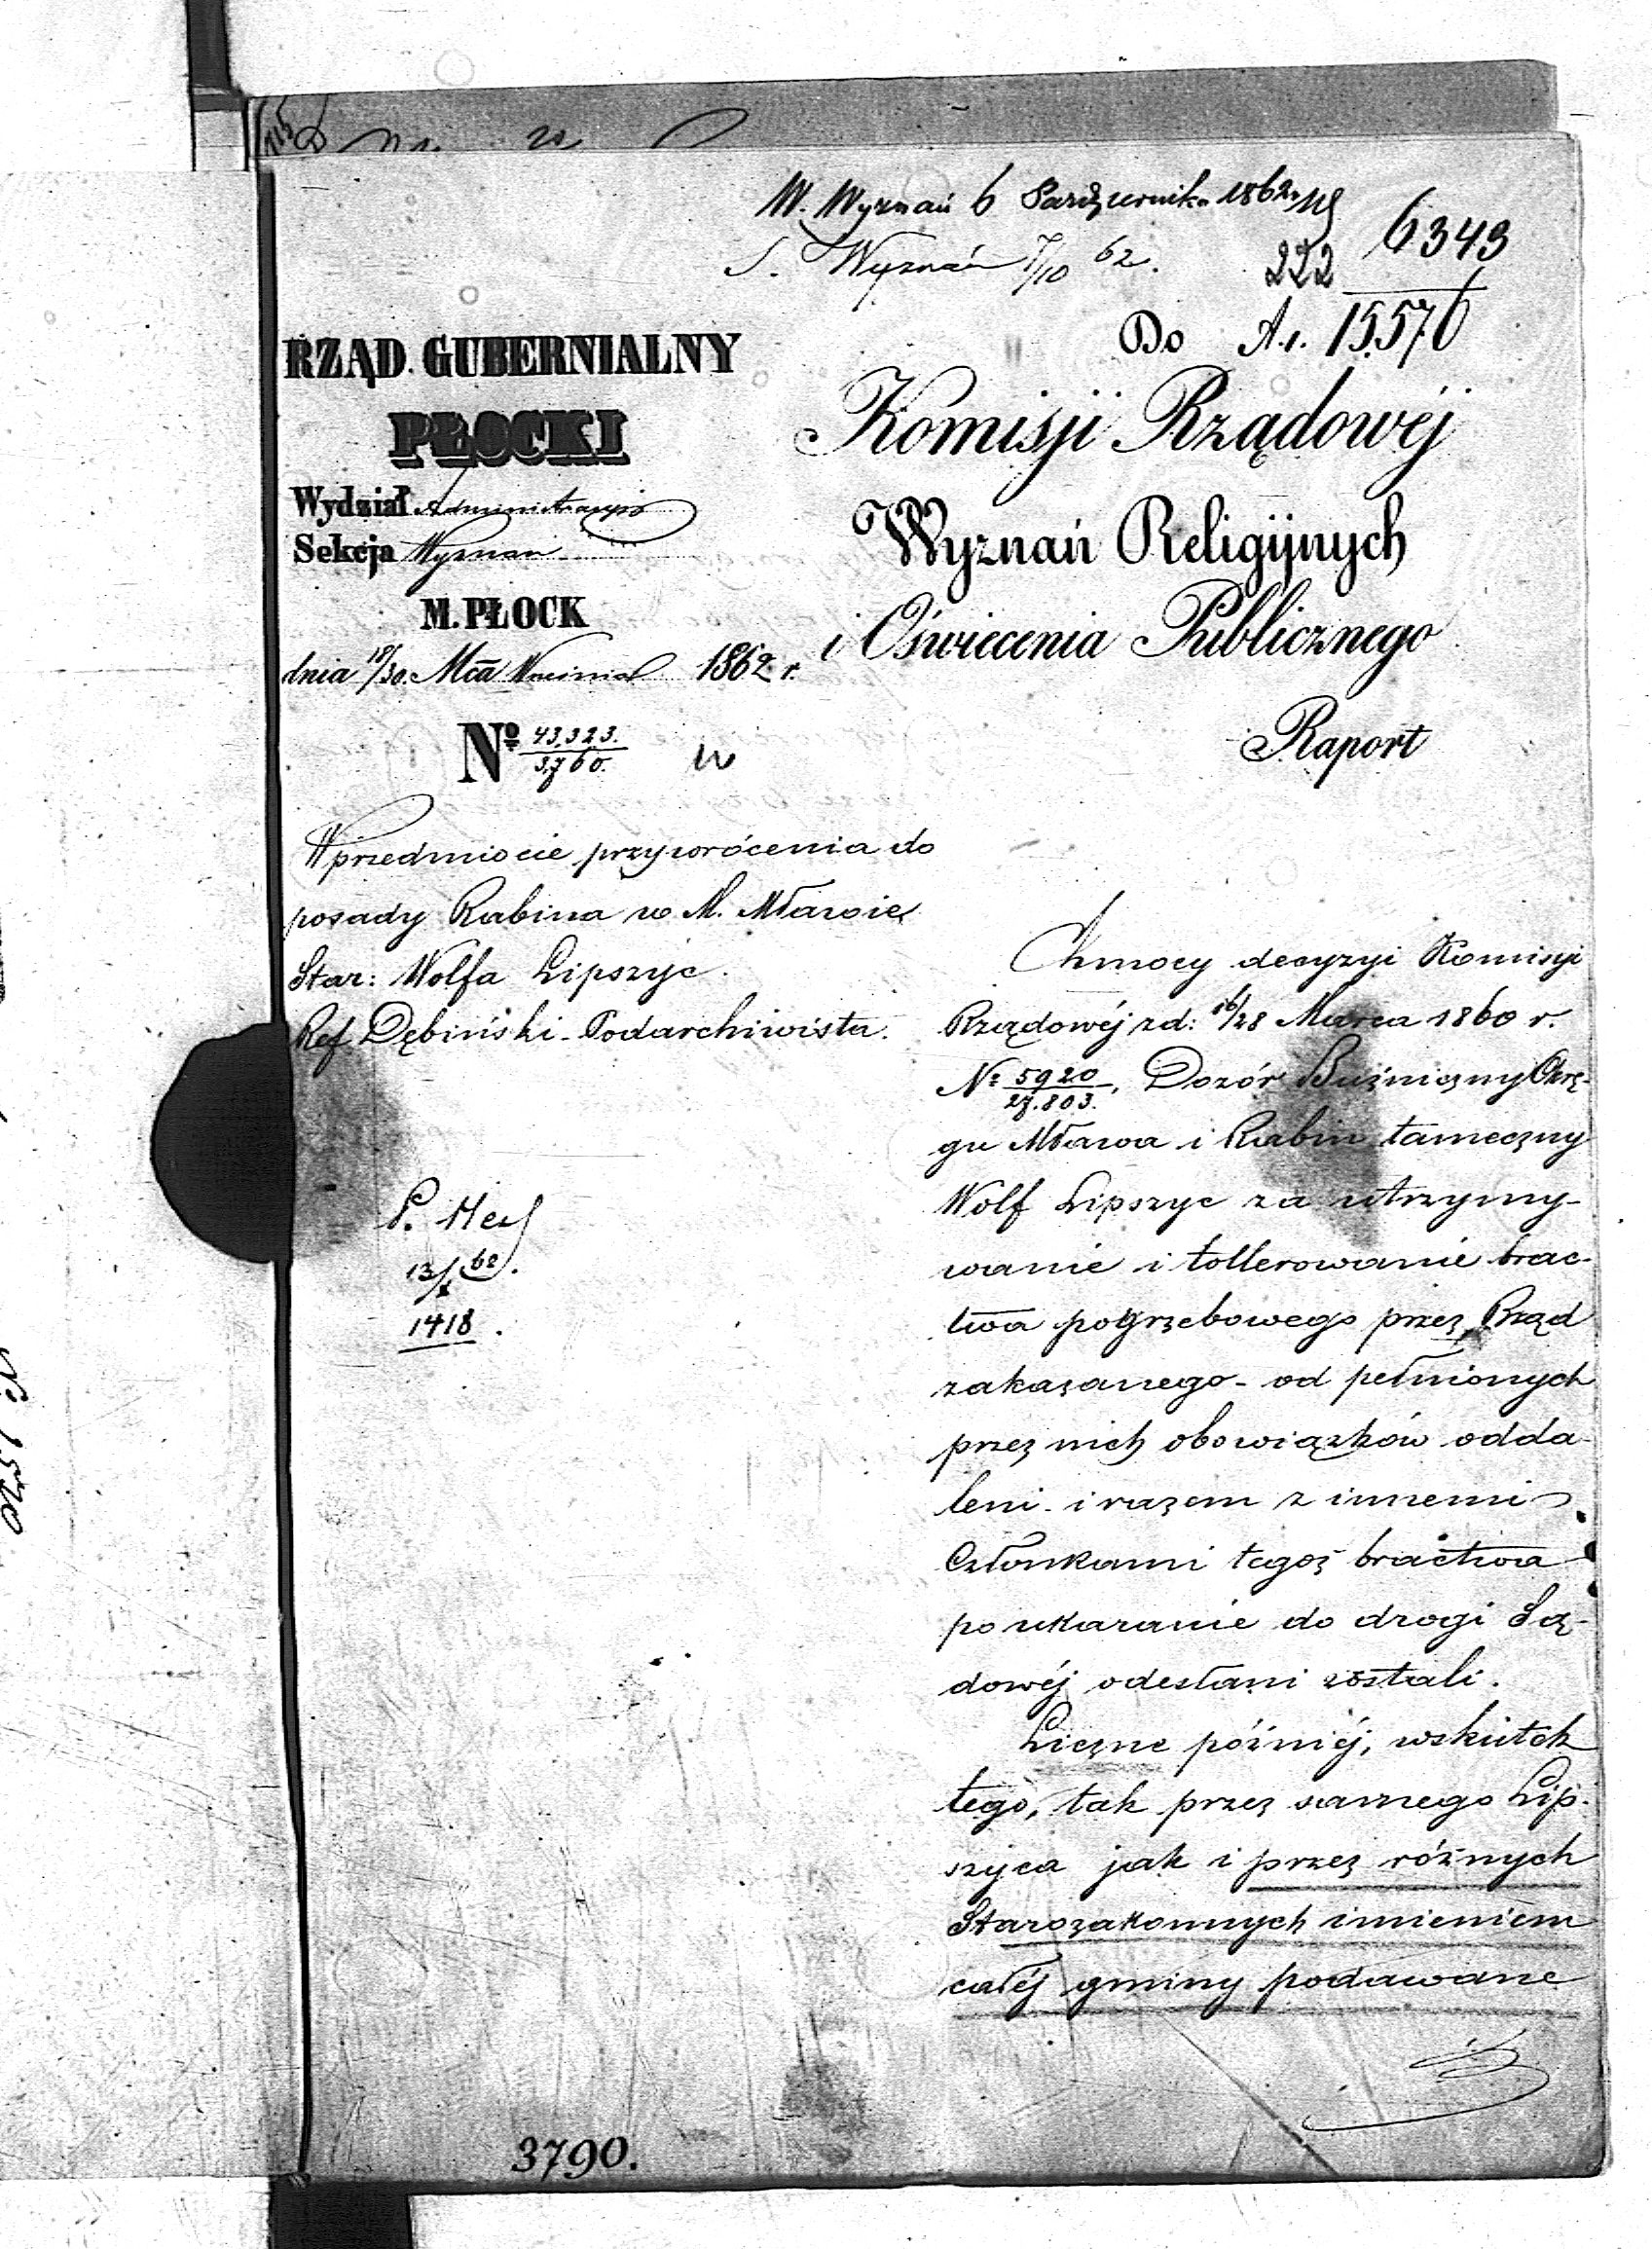 W. Wyznań 6 Październik 1862 r.
S. Wyznań 7/10 62.
6343
222
A. 1. 15.576
RZĄD GUBERNIALNY
PŁOCKI
Wydział Administracyjny
Sekcja Wyznań
M. PŁOCK
dnia 18/30. Mca Września 1862 r.
No 43.323. / 3.760.
Do
Komisji Rządowéj
Wyznań Religijnych
i Oświecenia Publicznego
Raport
W przedmiocie przywrócenia do
posady Rabina w M. Mławie
Star: Wolfa Lipszyc.
Ref Dębiński - Podarchiwista.
13/X 62.
1418.
Z mocy decyzyi Komisyi
Rządowéj z d: 16/28 Marca 1860 r.
No 5920 / 27.803., Dozór Bużniczny Okrę-
gu Mława i Rabin tameczny
Wolf Lipszyc za utrzymy-
wanie i tollerowanie brac-
twa pogrzebowego przez Rząd
zakazanego - od pełnionych
przez nich obowiązków odda-
leni i razem z innemi
Członkami tegoż bractwa
po ukaranie do drogi Są-
dowéj odesłani zostali.
Liczne późniéj, wskutek
tego, tak przez samego Lip-
szyca jak i przez różnych
Starozakonnych imieniem
całéj gminy podawane
3790.